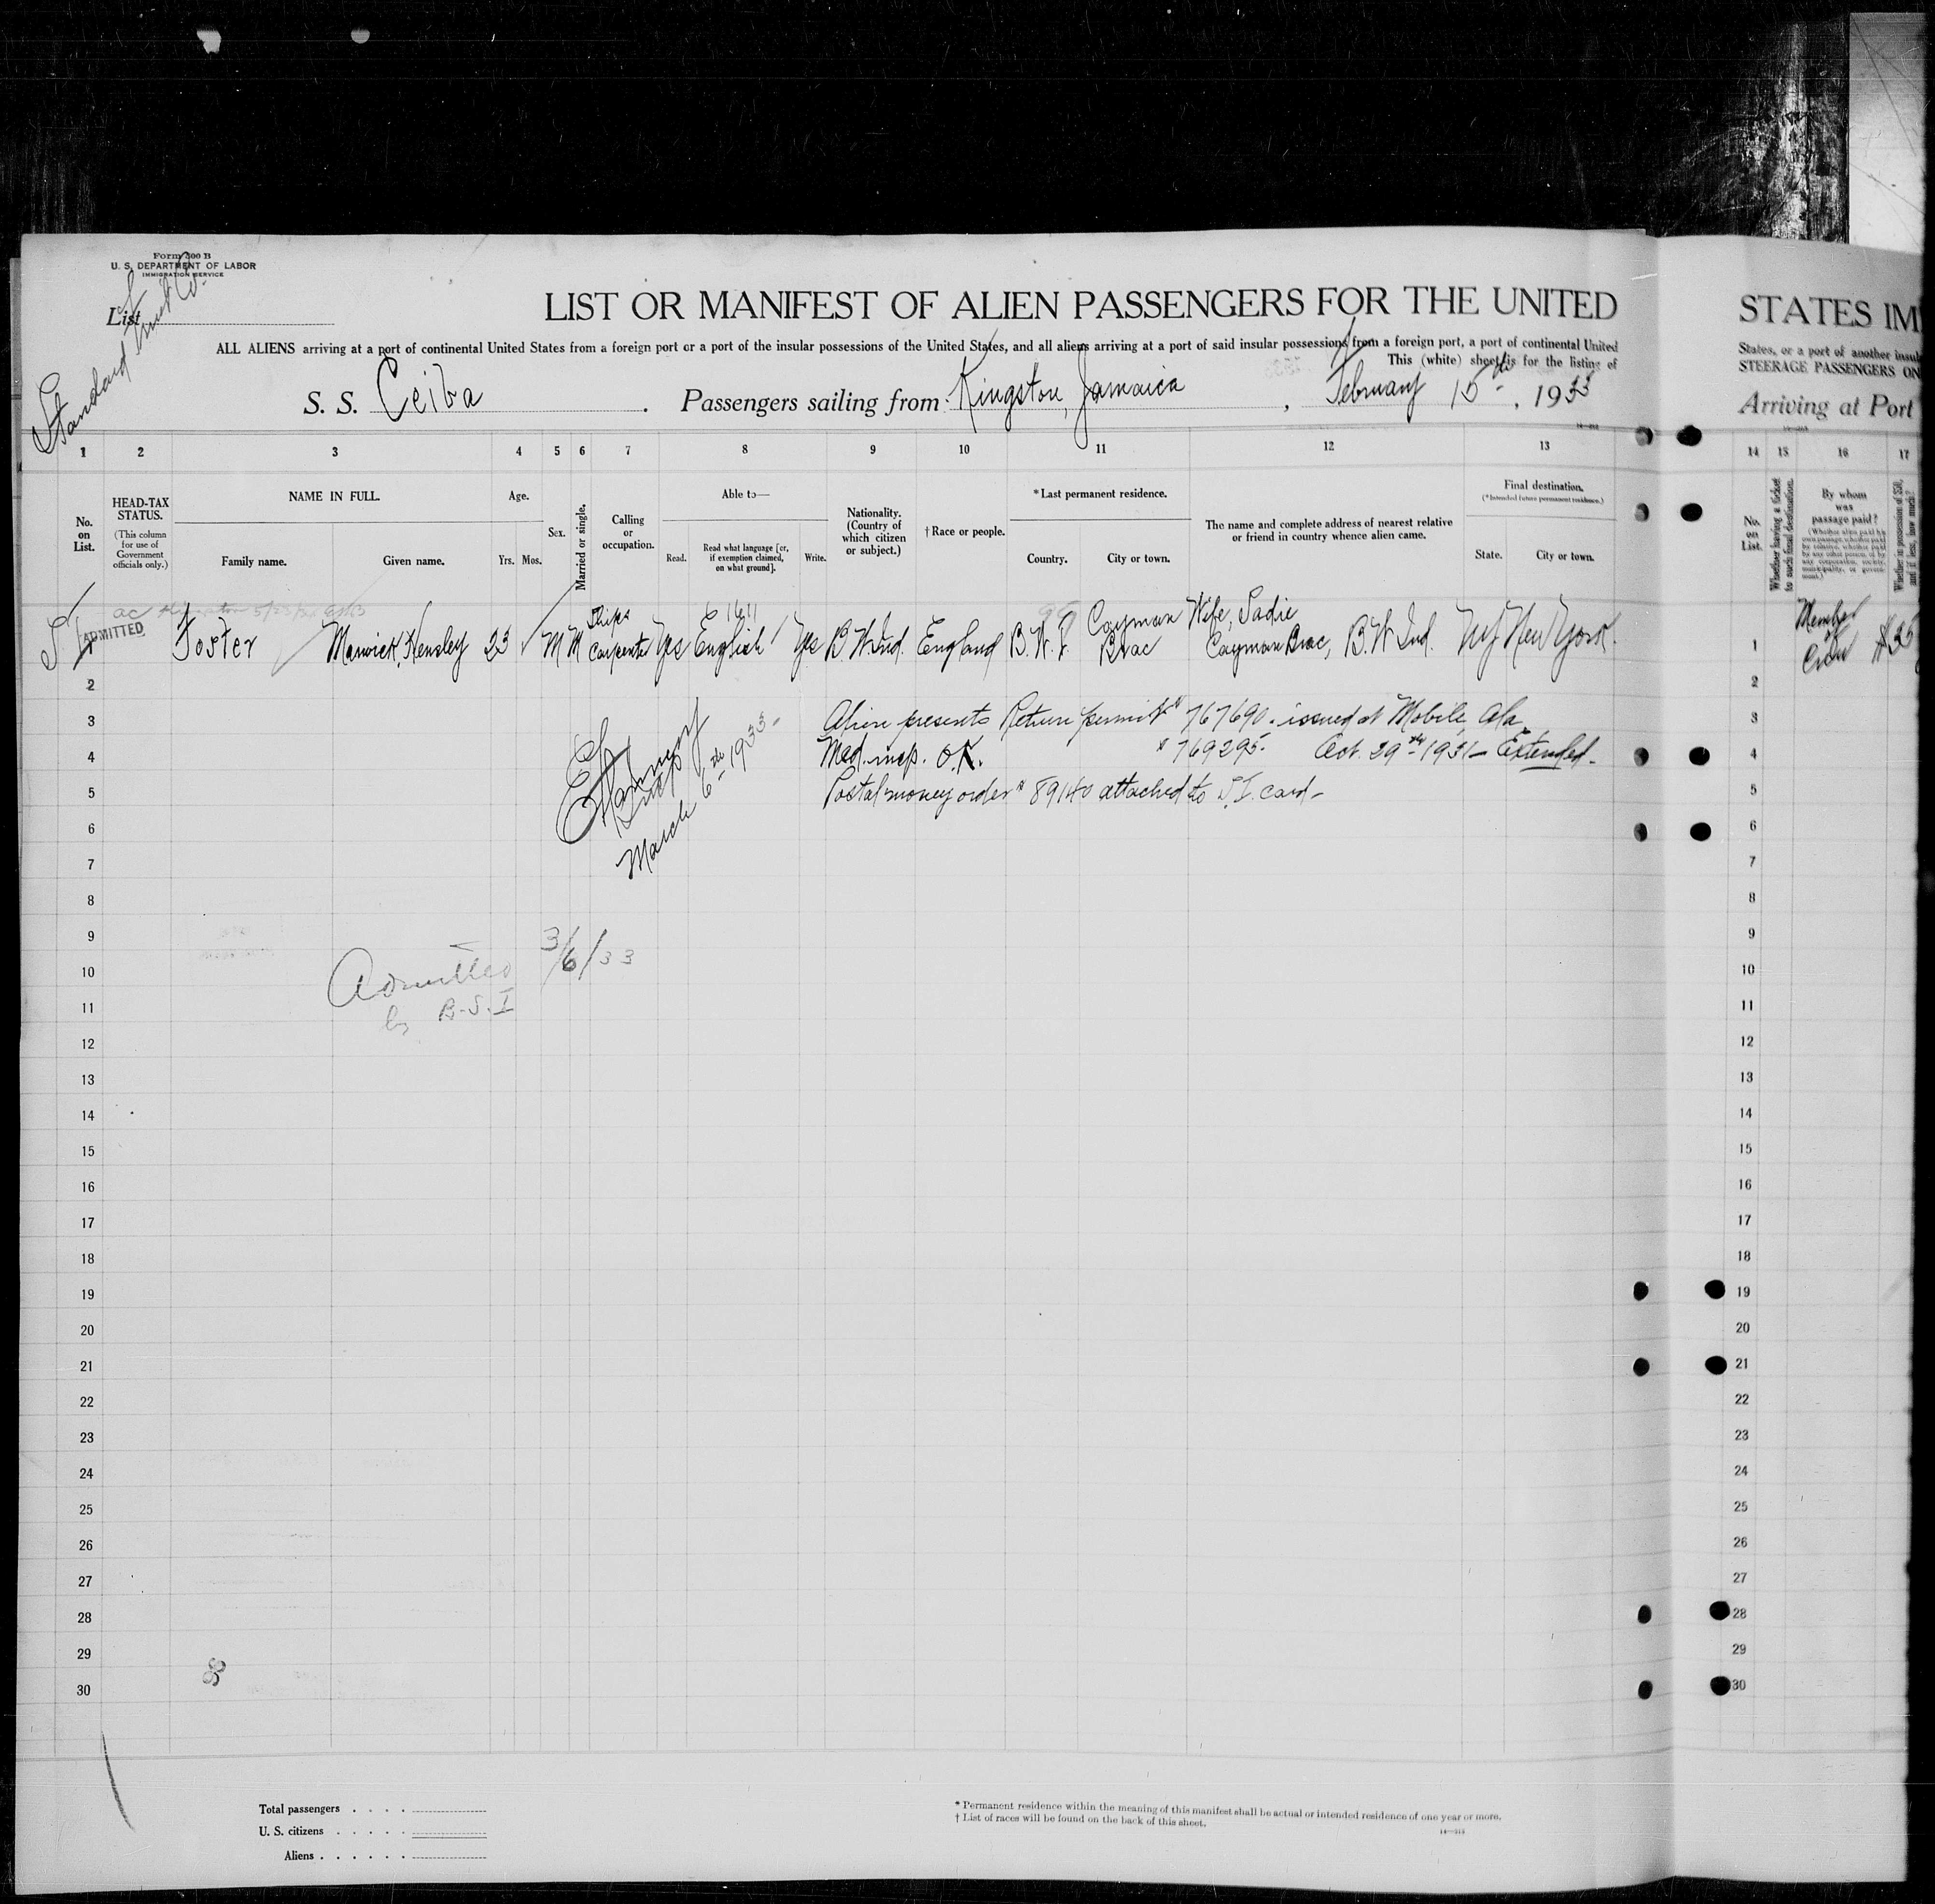 Form 500 B
U. S. DEPARTMENT OF LABOR
IMMIGRATION SERVICE
List
Standard Fruit Co.
LIST OR MANIFEST OF ALIEN PASSENGERS FOR THE UNITED
ALL ALIENS arriving at a port of continental United States from a foreign port or a port of the insular possessions of the United States, and all aliens arriving at a port of said insular possessions from a foreign port, a port of continental United
This (white) sheet is for the listing of
S. S. Ceiba . Passengers sailing from Kingston, Jamaica , February 15th , 1933
1 2 3 4 5 6 7 8 9 10 11 12 13
No. on List.
HEAD-TAX STATUS.
(This column for use of Government officials only.)
NAME IN FULL.
Family name. Given name.
Age.
Yrs. Mos.
Sex.
Married or single.
Calling or occupation.
Able to—
Read. Read what language [or, if exemption claimed, on what ground]. Write.
Nationality. (Country of which citizen or subject.)
† Race or people.
*Last permanent residence.
Country. City or town.
The name and complete address of nearest relative or friend in country whence alien came.
Final destination.
(*Intended future permanent residence.)
State. City or town.
ADMITTED Foster Marwick, Hensley 23 M M Ships Carpenter Yes English Yes B.W.Ind. England B.W.I. Cayman Brac Wife, Sadie Cayman Brac, B.W.Ind. NY New York.
2
3 Alien presents Return permit # 767690. issued at Mobile, Ala
4 Med. insp. O.K. # 769295. Oct. 29th 1931 – Extended.
5 Postal money order # 89140 attached to S.I. card –
Insp
March 6th 1933
6
7
8
9
10 Admitted 3/6/33
11 by B.S.I
12
13
14
15
16
17
18
19
20
21
22
23
24
25
26
27
28
29
30
Total passengers . . . .
U. S. citizens . . . . .
Aliens . . . . . .
* Permanent residence within the meaning of this manifest shall be actual or intended residence of one year or more.
† List of races will be found on the back of this sheet.
STATES IM
States, or a port of another insul
STEERAGE PASSENGERS ON
Arriving at Port
14 15 16 17
No. on List.
Whether having a ticket to such final destination.
By whom was passage paid?
Whether in possession of $50, and if less, how much?
1 Member of Crew $25
2
3
4
5
6
7
8
9
10
11
12
13
14
15
16
17
18
19
20
21
22
23
24
25
26
27
28
29
30